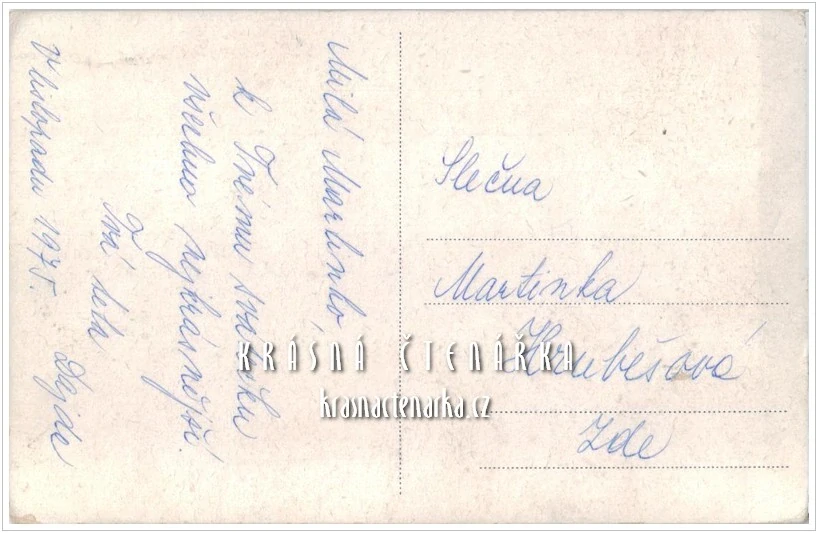 Milá Martinko,
k Tvému svátku
všechno nejkrásnější.
Tvá teta
V listopadu 1975.
Slečna
Martinka
Hrubešová
Zde
KRÁSNÁ ČTENÁŘKA
krasnactenarka.cz